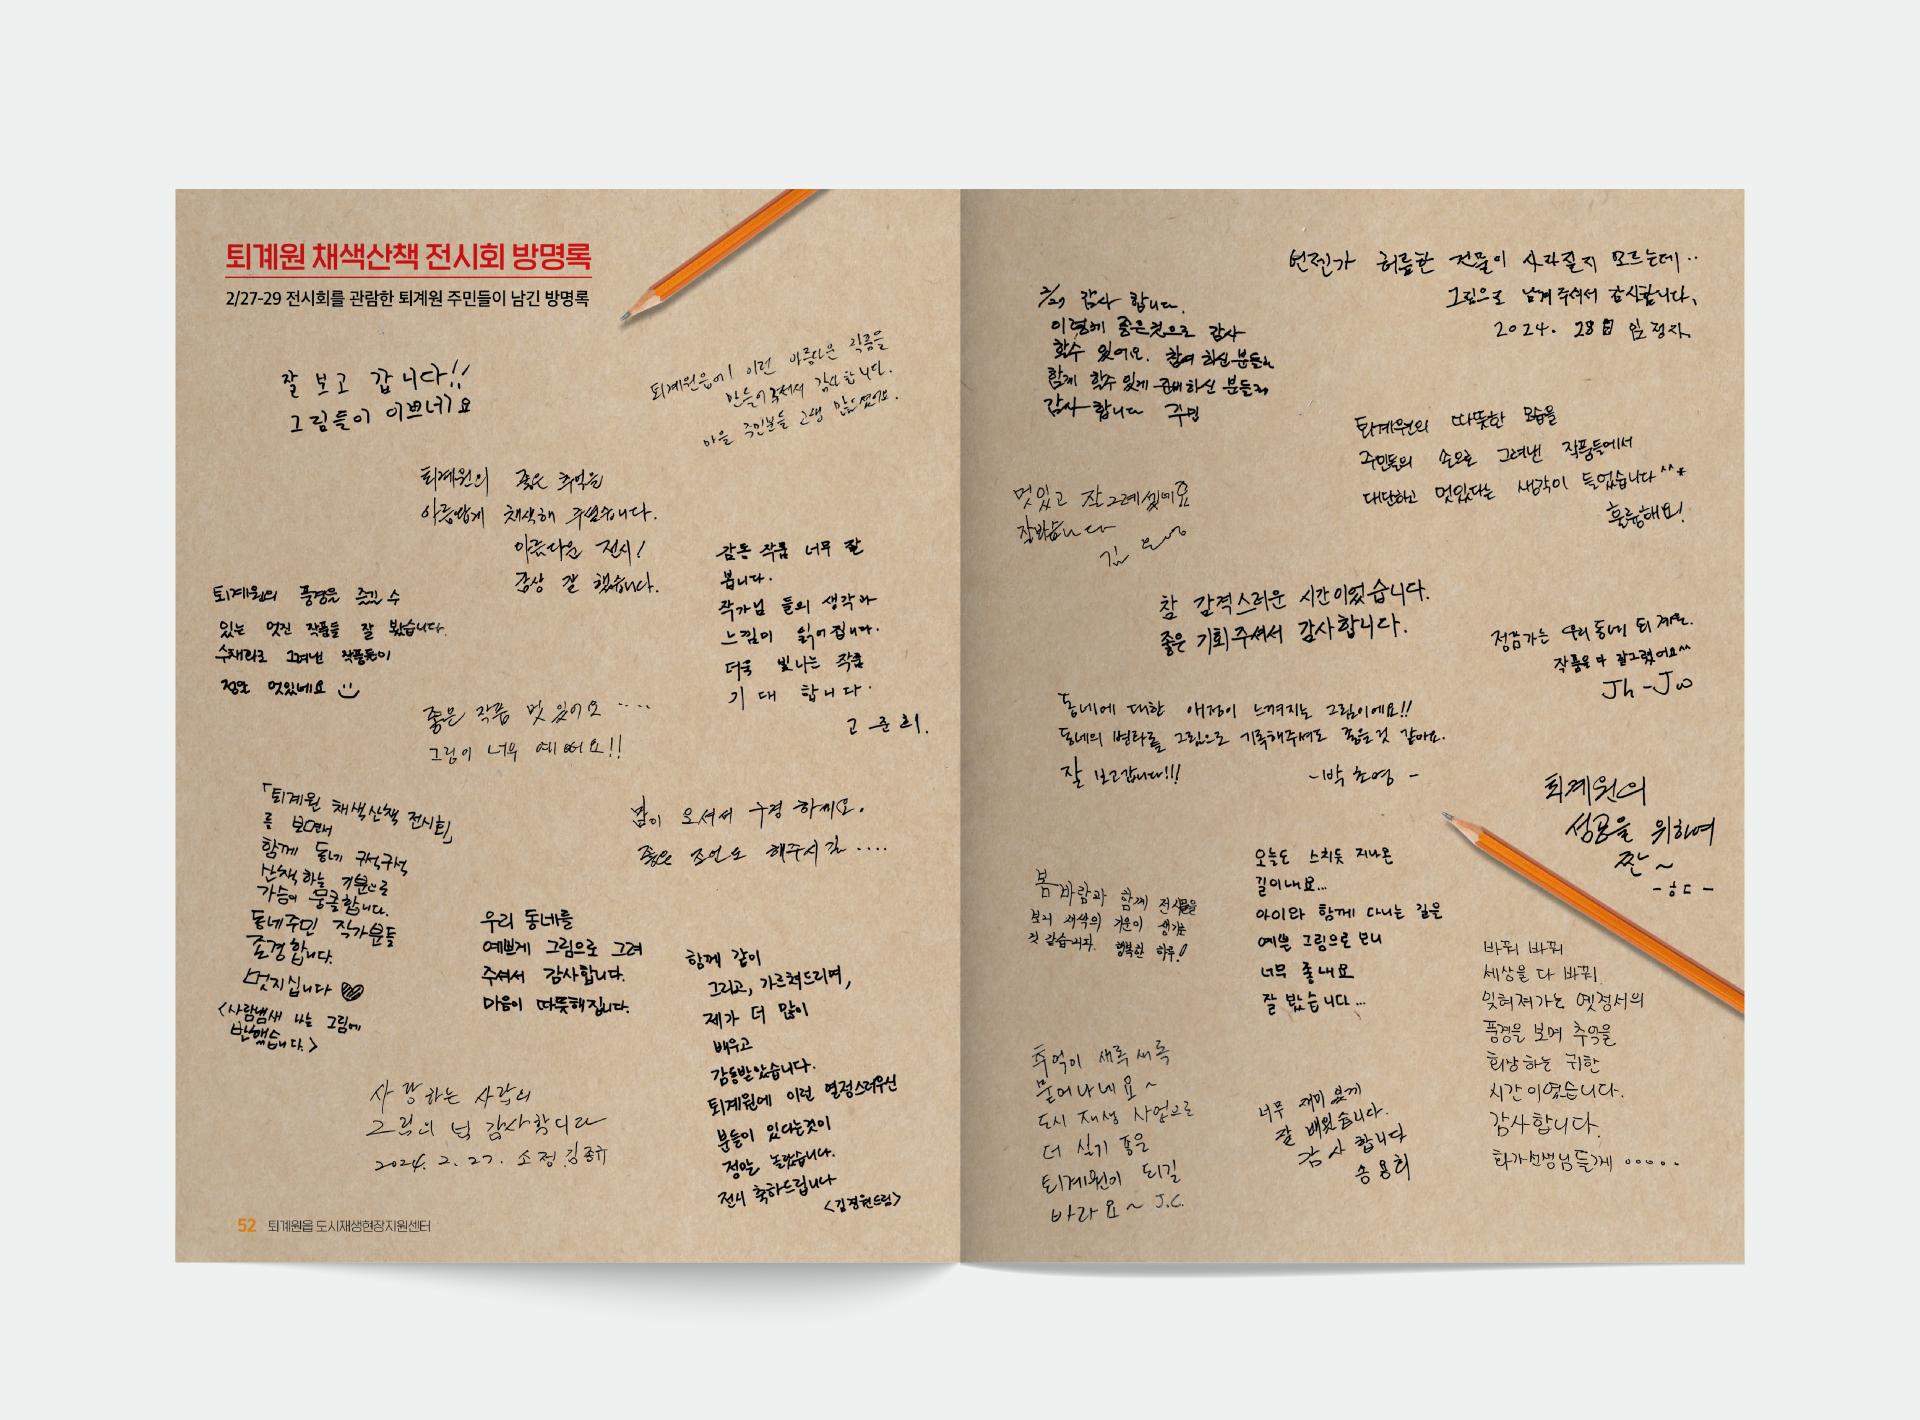 퇴계원 채색산책 전시회 방명록
2/27-29 전시회를 관람한 퇴계원 주민들이 남긴 방명록
잘 보고 갑니다!!
그림들이 이쁘네요
퇴계원읍에 이런 아름다운 작품을
만들어주셔서 감사합니다.
마을 주민분들 고생 많으셨어요.
퇴계원의 좋은 추억을
아름답게 채색해 주셨습니다.
아름다운 전시!
감상 잘 했습니다.
퇴계원의 풍경을 즐길 수
있는 멋진 작품들 잘 봤습니다.
수채화로 그려낸 작품들이
정말 멋있네요
감동 작품 너무 잘
봅니다.
작가님 들의 생각과
느낌이 읽어집니다.
더욱 빛나는 작품
기대 합니다.
고준희.
좋은 작품 멋있어요 ....
그림이 너무 예뻐요!!
「퇴계원 채색산책 전시회」
를 보면서
함께 동네 구석구석
산책하는 기분으로
가슴이 뭉클합니다.
동네주민 작가분들
존경합니다.
멋지십니다
<사람냄새 나는 그림에
반했습니다.>
많이 오셔서 구경 하세요.
좋은 조언도 해주시길 ....
우리 동네를
예쁘게 그림으로 그려
주셔서 감사합니다.
마음이 따뜻해집니다.
함께 같이
그리고, 가르쳐드리며,
제가 더 많이
배우고
감동받았습니다.
퇴계원에 이런 열정스러우신
분들이 있다는것이
정말 놀랐습니다.
전시 축하드립니다
<김경원드림>
사랑하는 사람의
그림의 감사합니다
2024. 2. 27. 소정 김종규
52 퇴계원읍 도시재생현장지원센터
언젠가 허름한 건물이 사라질지 모르는데..
그림으로 남겨주셔서 감사합니다.
2024. 28日 임정자.
2/27 감사 합니다.
이렇게 좋은것으로 감사
할수 있어요. 참여 하신 분들과
함께 할수 있게 준비하신 분들과
감사 합니다 주민
퇴계원의 따뜻한 모습을
주민들의 손으로 그려낸 작품들에서
대단하고 멋있다는 생각이 들었습니다^^*
훌륭해요!
멋있고 잘그려셨네요
잘봤습니다
김
참 감격스러운 시간이었습니다.
좋은 기회주셔서 감사합니다.
정감가는 우리동네 퇴계원.
작품을 다 잘그렸어요^^
Jh-Jw
동네에 대한 애정이 느껴지는 그림이에요!!
동네의 변화를 그림으로 기록해주셔도 좋을것 같아요.
잘 보고갑니다!!!
-박초영-
퇴계원의
성공을 위하여
짠~
-ㅎㄷ-
봄바람과 함께 전시회를
보니 새싹의 기운이 생기는
것 같습니다. 행복한 하루!
오늘도 스치듯 지나온
길이네요...
아이와 함께 다니는 길을
예쁜 그림으로 보니
너무 좋네요
잘 봤습니다...
바뀌 바뀌
세상을 다 바꿔.
잊혀져가는 옛정서의
풍경을 보며 추억을
회상하는 귀한
시간이였습니다.
감사합니다.
화가선생님들께 .....
추억이 새록새록
묻어나네요~
도시 재생 사업으로
더 살기 좋은
퇴계원이 되길
바라요~ J.C.
너무 재미있게
잘 배웠습니다.
감사 합니다
송용희